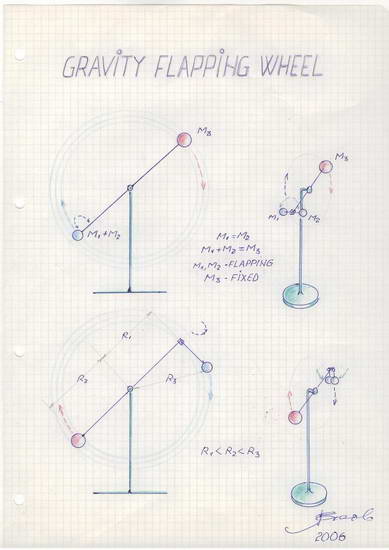 GRAVITY FLAPPING WHEEL
M₃
M₁+M₂
M₃
M₁
M₂
M₁=M₂
M₁+M₂=M₃
M₁,M₂-FLAPPING
M₃-FIXED
R₁
R₂
R₃
R₁<R₂<R₃
2006